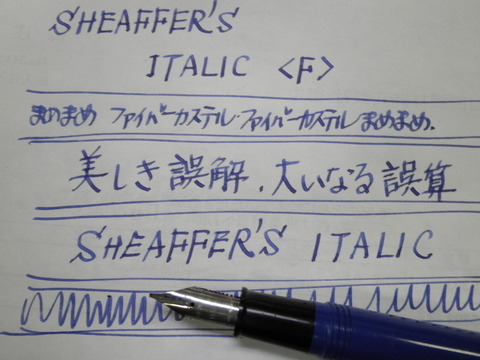 SHEAFFER'S
ITALIC <F>
まめまめ ファイバーカステル・ファイバーカステル まめまめ.
美しき誤解、大いなる誤算
SHEAFFER'S ITALIC